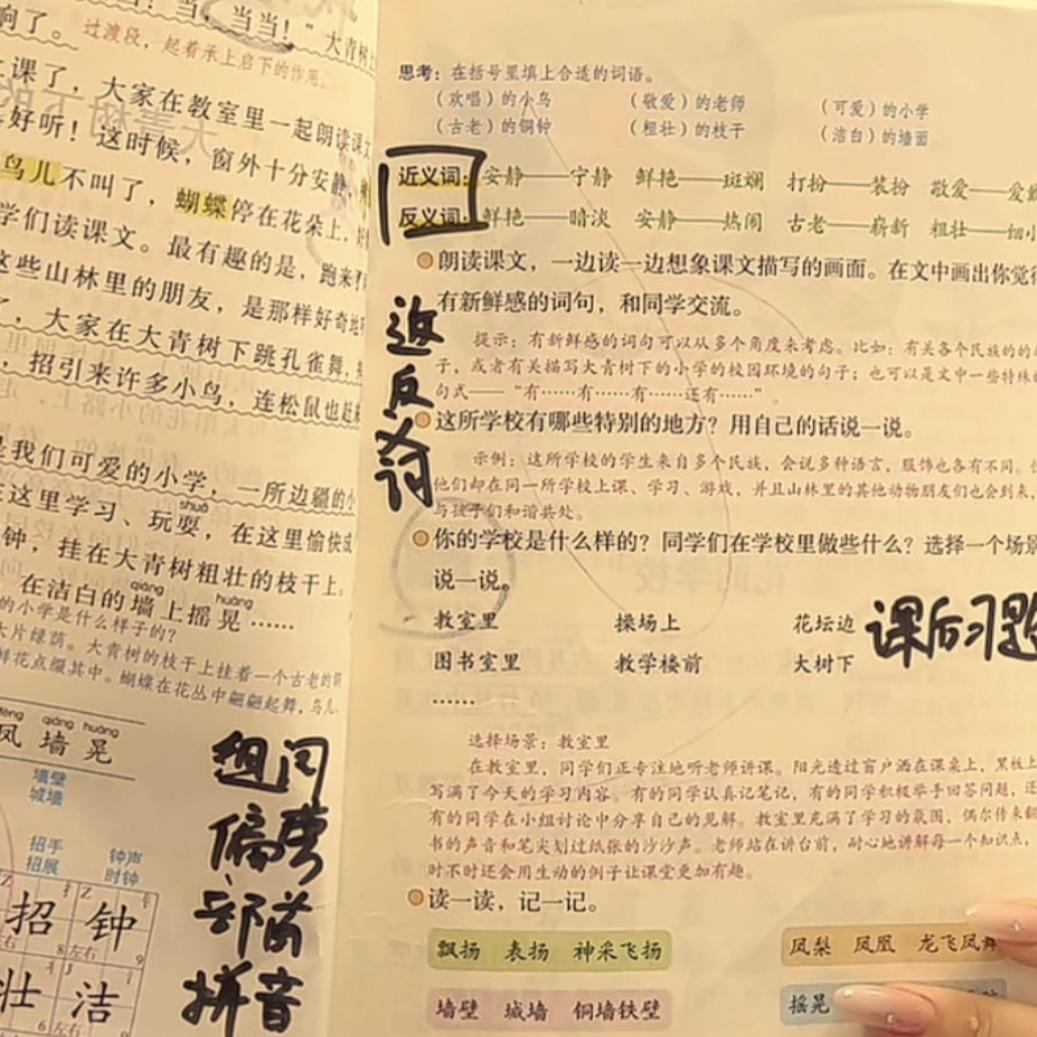 当！当，当当！”大青树
响了。过渡段，起着承上启下的作用。
上课了，大家在教室里一起朗读课文
好听！这时候，窗外十分安静，
鸟儿不叫了，蝴蝶停在花朵上，
学们读课文。最有趣的是，跑来
这些山林里的朋友，是那样好奇地
了，大家在大青树下跳孔雀舞、
，招引来许多小鸟，连松鼠也赶来
是我们可爱的小学，一所边疆的小
在这里学习、玩耍，在这里愉快成
shuǎ
钟，挂在大青树粗壮的枝干上。
qiáng huàng
在洁白的墙上摇晃……
的小学是什么样子的？
大片绿荫。大青树的枝干上挂着一个古老的铜
鲜花点缀其中。蝴蝶在花丛中翩翩起舞，鸟儿
fèng qiáng huàng
凤 墙 晃
墙壁
城墙
招手 钟声
招展 时钟
招 钟
壮 洁
组词
偏旁
部首
拼音
思考：在括号里填上合适的词语。
（欢唱）的小鸟 （敬爱）的老师 （可爱）的小学
（古老）的铜钟 （粗壮）的枝干 （洁白）的墙面
近义词：安静——宁静 鲜艳——斑斓 打扮——装扮 敬爱——爱戴
反义词：鲜艳——暗淡 安静——热闹 古老——崭新 粗壮——细小
近反义词
朗读课文，一边读一边想象课文描写的画面。在文中画出你觉得
有新鲜感的词句，和同学交流。
提示：有新鲜感的词句可以从多个角度来考虑。比如：有关各个民族的
子，或者有关描写大青树下的小学的校园环境的句子；也可以是文中一些特殊的
句式——“有……有……有……还有……”。
这所学校有哪些特别的地方？用自己的话说一说。
示例：这所学校的学生来自多个民族，会说多种语言，服饰也各有不同。
他们却在同一所学校上课、学习、游戏，并且山林里的其他动物朋友们也会到来，
与孩子们和谐共处。
你的学校是什么样的？同学们在学校里做些什么？选择一个场景
说一说。
教室里 操场上 花坛边
图书室里 教学楼前 大树下
……
课后习题
选择场景：教室里
在教室里，同学们正专注地听老师讲课。阳光透过窗户洒在课桌上，黑板上
写满了今天的学习内容。有的同学认真记笔记，有的同学积极举手回答问题，还
有的同学在小组讨论中分享自己的见解。教室里充满了学习的氛围，偶尔传来翻
书的声音和笔尖划过纸张的沙沙声。老师站在讲台前，耐心地讲解每一个知识点，
时不时还会用生动的例子让课堂更加有趣。
读一读，记一记。
飘扬 表扬 神采飞扬 凤梨 凤凰 龙飞凤舞
墙壁 城墙 铜墙铁壁 摇晃